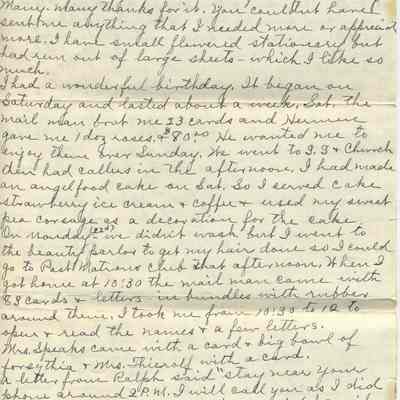 Many. Many thanks for it. You couldn't have
sent me anything that I needed more or appreciated
more. I have small flowered stationery but
had run out of large sheets - which I like so
much.
I had a wonderful birthday. It began on
Saturday and lasted about a week. Sat. the
mail man brot me 23 cards and Herman
gave me 1 doz roses. $80.00 He wanted me to
enjoy them over Sunday. We went to S.S & Church
then had callers in the afternoon. I had made
an angel food cake on Sat. So I served cake
strawberry ice cream & coffee & used my sweet
pea corsage as a decoration for the cake.
On Monday we didn't wash but I went to
the beauty parlor to get my hair done so I could
go to Past Matrons Club that afternoon. When I
got home at 10:30 the mail man came with
83 cards & letters in bundles with rubber
around them. It took me from 10:30 to 12 to
open & read the names & a few letters.
Mrs. Speaks came with a card & big bowl of
forsythia & Mrs. Thierolf with a card.
a letter from Ralph said "stay near your
phone around 2 P.M. I will call you as I did